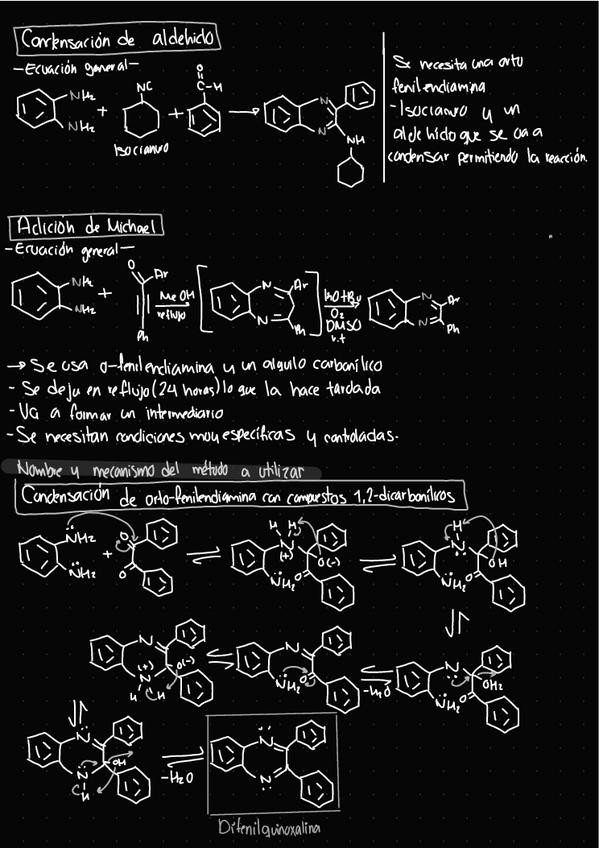 Condensación de aldehido
-Ecuación general-
NH2
NH2
+
NC
Isocianuro
+
O
C-H
N
N
NH
Se necesita una orto
fenilendiamina
-Isocianuro y un
aldehido que se va a
condensar permitiendo la reacción.
Adición de Michael
-Ecuación general-
NH2
NH2
+
O
Ar
Ph
MeOH
reflujo
N
N
Ar
Ph
O2
DMSO
r.t
N
N
Ar
Ph
→ Se usa o-fenilendiamina y un alquilo carbonílico
- Se deja en reflujo (24 horas) lo que la hace tardada
- Va a formar un intermediario
- Se necesitan condiciones muy específicas y controladas.
Nombre y mecanismo del método a utilizar
Condensación de orto-fenilendiamina con compuestos 1,2-dicarbonílicos
NH2
NH2
+
O
O
H H
N
(+)
O(-)
NH2
O
H
N
OH
NH2
O
N
(+)
O(-)
N
H H
N
NH2
O
-H2O
N
OH2
NH2
O
N
OH
N
H
-H2O
N
N
Difenilquinoxalina